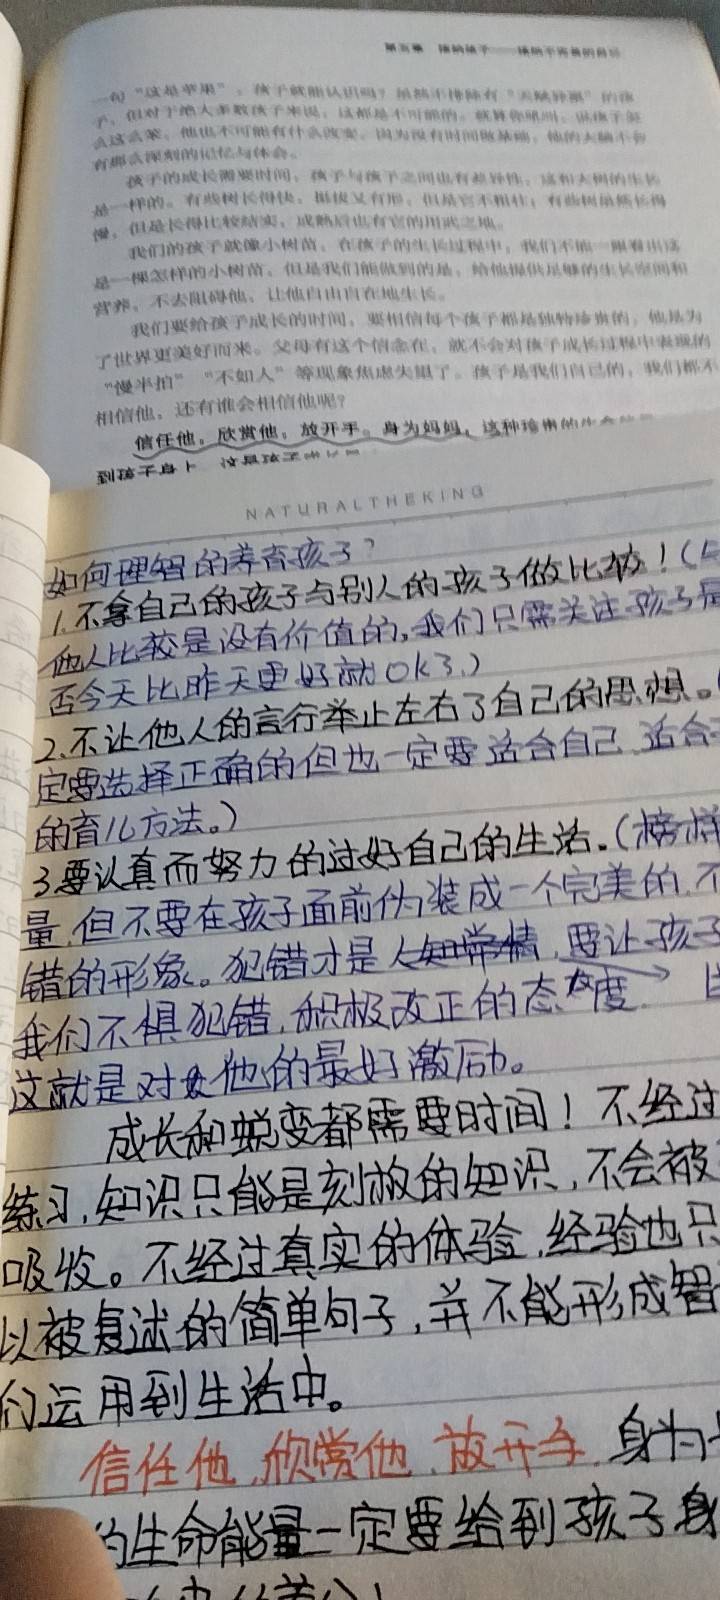 第五章 接纳孩子——接纳不完美的自己
一句“这是苹果”，孩子就能认识吗？虽然不排除有“天赋异禀”的孩
子，但对于绝大多数孩子来说，这都是不可能的。就算你吼叫，说孩子怎
么这么笨，他也不可能有什么改变。因为没有时间做基础，他的大脑不会
有那么深刻的记忆与体会。
孩子的成长需要时间，孩子与孩子之间也有差异性，这和大树的生长
是一样的。有些树长得快，挺拔又有形，但是它不粗壮；有些树虽然长得
慢，但是长得比较结实，成熟后也有它的用武之地。
我们的孩子就像小树苗，在孩子的生长过程中，我们不能一眼看出这
是一棵怎样的小树苗，但是我们能做到的是，给他提供足够的生长空间和
营养，不去阻碍他，让他自由自在地生长。
我们要给孩子成长的时间，要相信每个孩子都是独特珍贵的，他是为
了世界更美好而来。父母有这个信念在，就不会对孩子成长过程中表现的
“慢半拍”“不如人”等现象焦虑失望了。孩子是我们自己的，我们都不
相信他，还有谁会相信他呢？
信任他，欣赏他，放开手。身为妈妈，这种珍贵的生命
到孩子身上，这是孩子
NATURALTHEKING
如何理智的养育孩子？
1.不拿自己的孩子与别人的孩子做比较！（
他人比较是没有价值的，我们只需关注孩子是
否今天比昨天更好就OK了。）
2.不让他人的言行举止左右了自己的思想。（
定要选择正确的但也一定要适合自己、适合
的育儿方法。）
3.要认真而努力的过好自己的生活。（榜样
量，但不要在孩子面前伪装成一个完美的，不
错的形象。犯错才是人之常情，要让孩子
我们不惧犯错，积极改正的态度
这就是对他的最好激励。
成长和蜕变都需要时间！不经过
练习，知识只能是刻板的知识，不会被
吸收。不经过真实的体验，经验也只
以被复述的简单句子，并不能形成智
们运用到生活中。
信任他，欣赏他，放开手，身为
的生命能量一定要给到孩子身